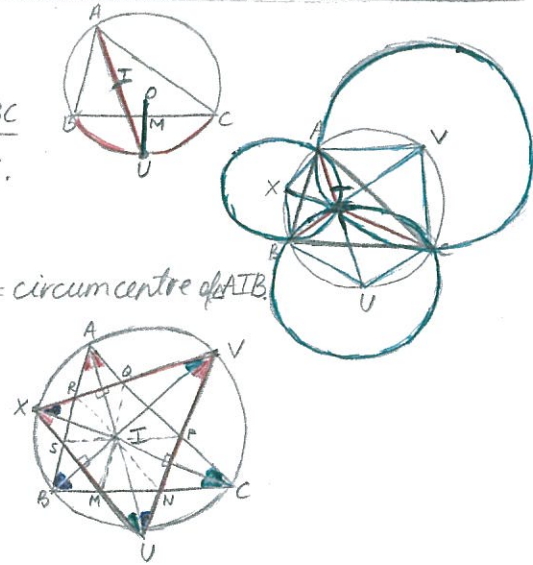 A
I
O
BC
B
M
C
U
A
V
X
I
B
C
U
= circumcentre of △AIB.
A
V
Q
R
X
I
P
S
B
M
N
C
U